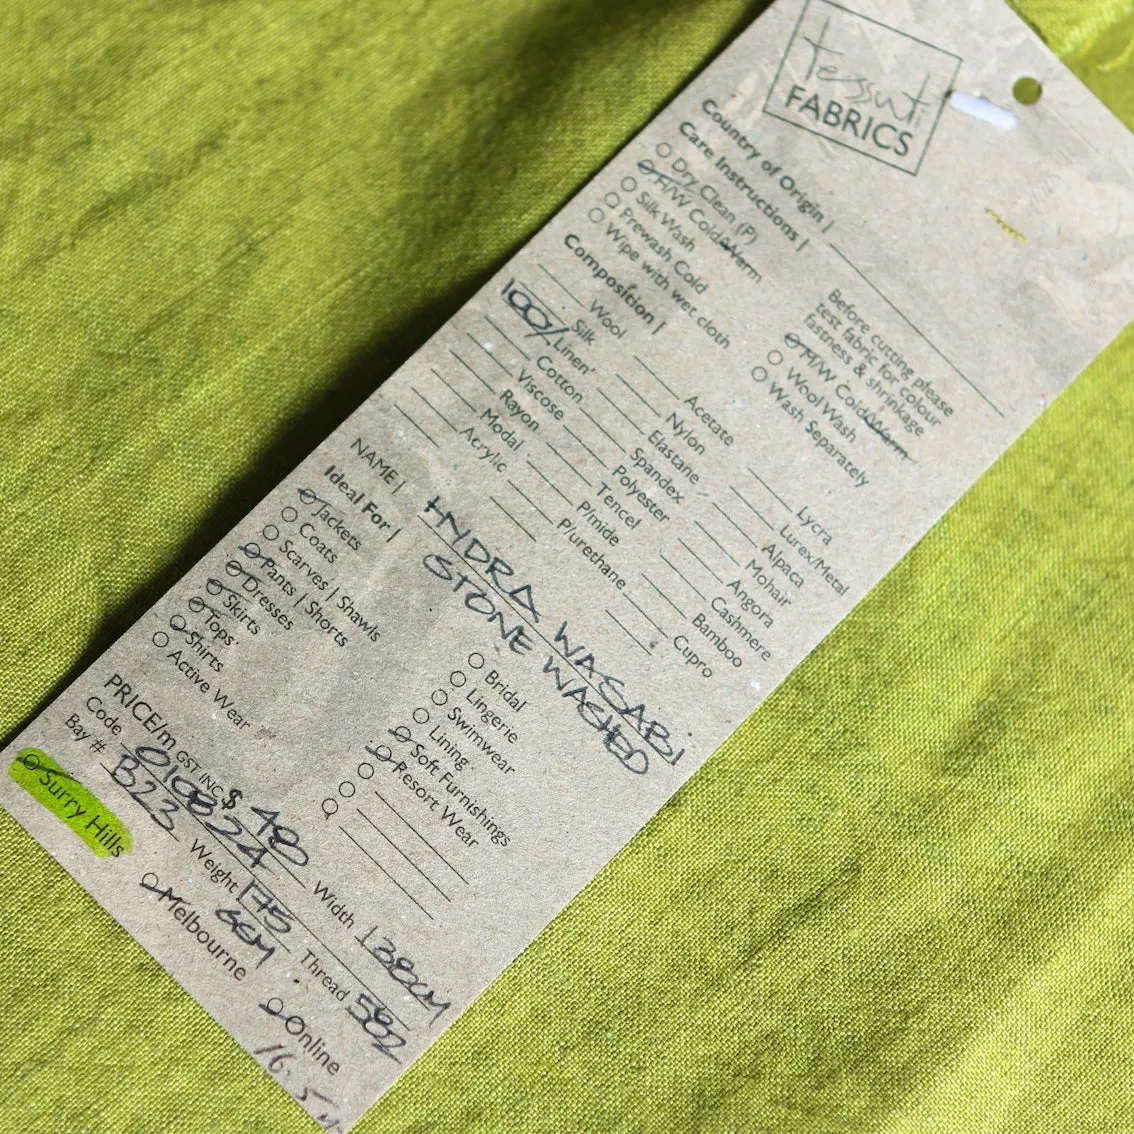 tessuti
FABRICS
Country of Origin |
Care Instructions |
Dry Clean (P)
H/W Cold/Warm
Silk Wash
Prewash Cold
Wipe with wet cloth
Before cutting please
test fabric for colour
fastness & shrinkage
M/W Cold/Warm
Wool Wash
Wash Separately
Composition |
Wool
Silk
100% Linen
Cotton
Viscose
Rayon
Modal
Acrylic
Acetate
Nylon
Elastane
Spandex
Polyester
Tencel
P/mide
P/urethane
Lycra
Lurex/Metal
Alpaca
Mohair
Angora
Cashmere
Bamboo
Cupro
NAME | HYDRA WASABI
STONE WASHED
Ideal For |
Jackets
Coats
Scarves | Shawls
Pants | Shorts
Dresses
Skirts
Tops
Shirts
Active Wear
Bridal
Lingerie
Swimwear
Lining
Soft Furnishings
Resort Wear
PRICE/m GST INC. $ 48 Width 138CM
Code 010824 Weight 175 GSM Thread 582
Bay # B23
Surry Hills Melbourne Online
16.5m